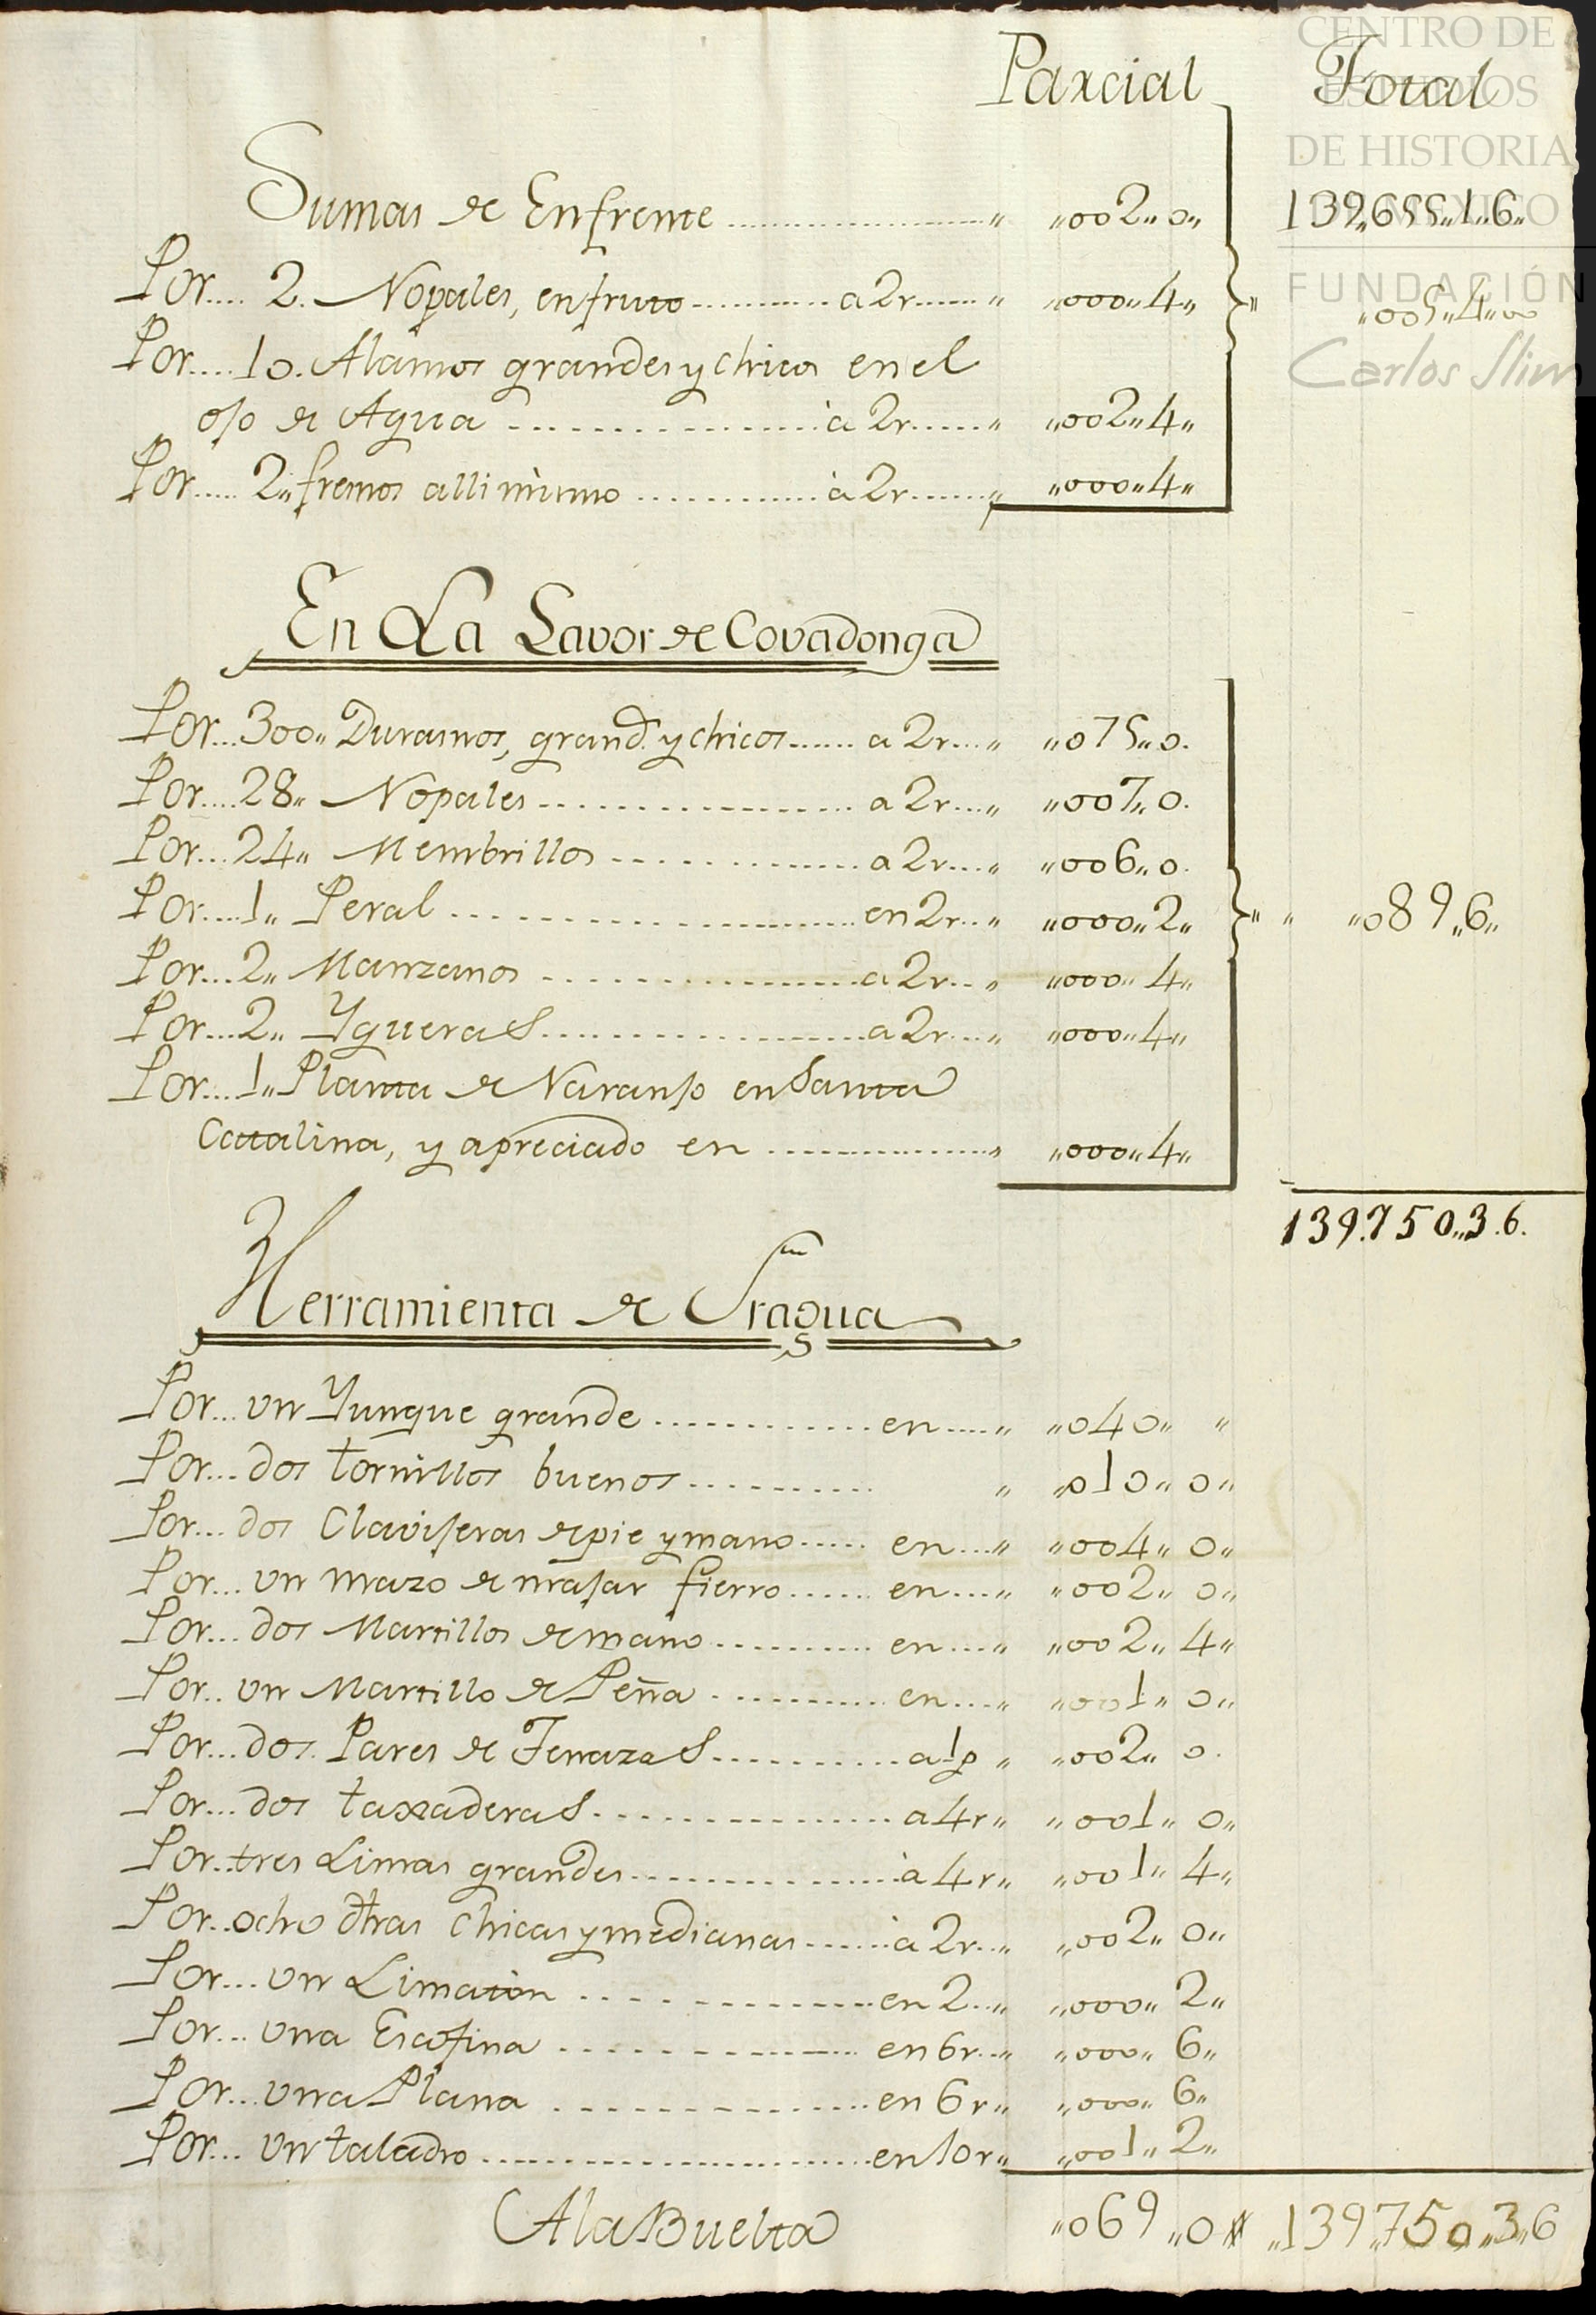 CENTRO DE
ESTUDIOS
DE HISTORIA
DE MÉXICO
FUNDACIÓN
Carlos Slim
Parcial Total
Sumas de Enfrente ,,002,,0,, 139,,655,,1,,6,,
Por.... 2. Nopales, en fruto a 2r ,,000,,4,, ,,005,,4,,0
Por.... 10. Alamos grandes y chicos en el
ojo de Agua à 2r ,,002,,4,,
Por..... 2,, fresnos alli mismo à 2r ,,000,,4,,
En La Lavor de Covadonga
Por... 300,, Duraznos, grand.s y chicos a 2r ,,075,,0.
Por.... 28,, Nopales a 2r ,,007,,0.
Por... 24,, Membrillos a 2r ,,006,,0.
Por.... 1,, Peral en 2r ,,000,,2,, ,,089,,6,,
Por... 2,, Manzanos a 2r ,,000,,4,,
Por... 2,, Ygueras a 2r ,,000,,4,,
Por... 1,, Planta de Naranjo en Santa
Catalina, y apreciado en ,,000,,4,,
139.750,,3.6.
Herramienta de Fragua
Por... un Yunque grande en ,,040,, ,,
Por... dos tornillos buenos ,,010,,0,,
Por... dos Clavijeras de pie y mano en ,,004,,0,,
Por... un mazo de majar fierro en ,,002,,0,,
Por... dos Martillos de mano en ,,002,,4,,
Por.. un Martillo de Peña en ,,001,,0,,
Por... dos Pares de Tenazas a 1p ,,002,,0.
Por... dos taxaderas a 4r ,,001,,0,,
Por.. tres Limas grandes à 4r ,,001,,4,,
Por.. ocho dhas chicas y medianas à 2r ,,002,,0,,
Por... un Limaton en 2 ,,000,,2,,
Por... una Escofina en 6r ,,000,,6,,
Por... una Plana en 6r ,,000,,6,,
Por... un taladro en 10r ,,001,,2,,
A la Buelta ,,069,,0,, ,,139,,750,,3,,6